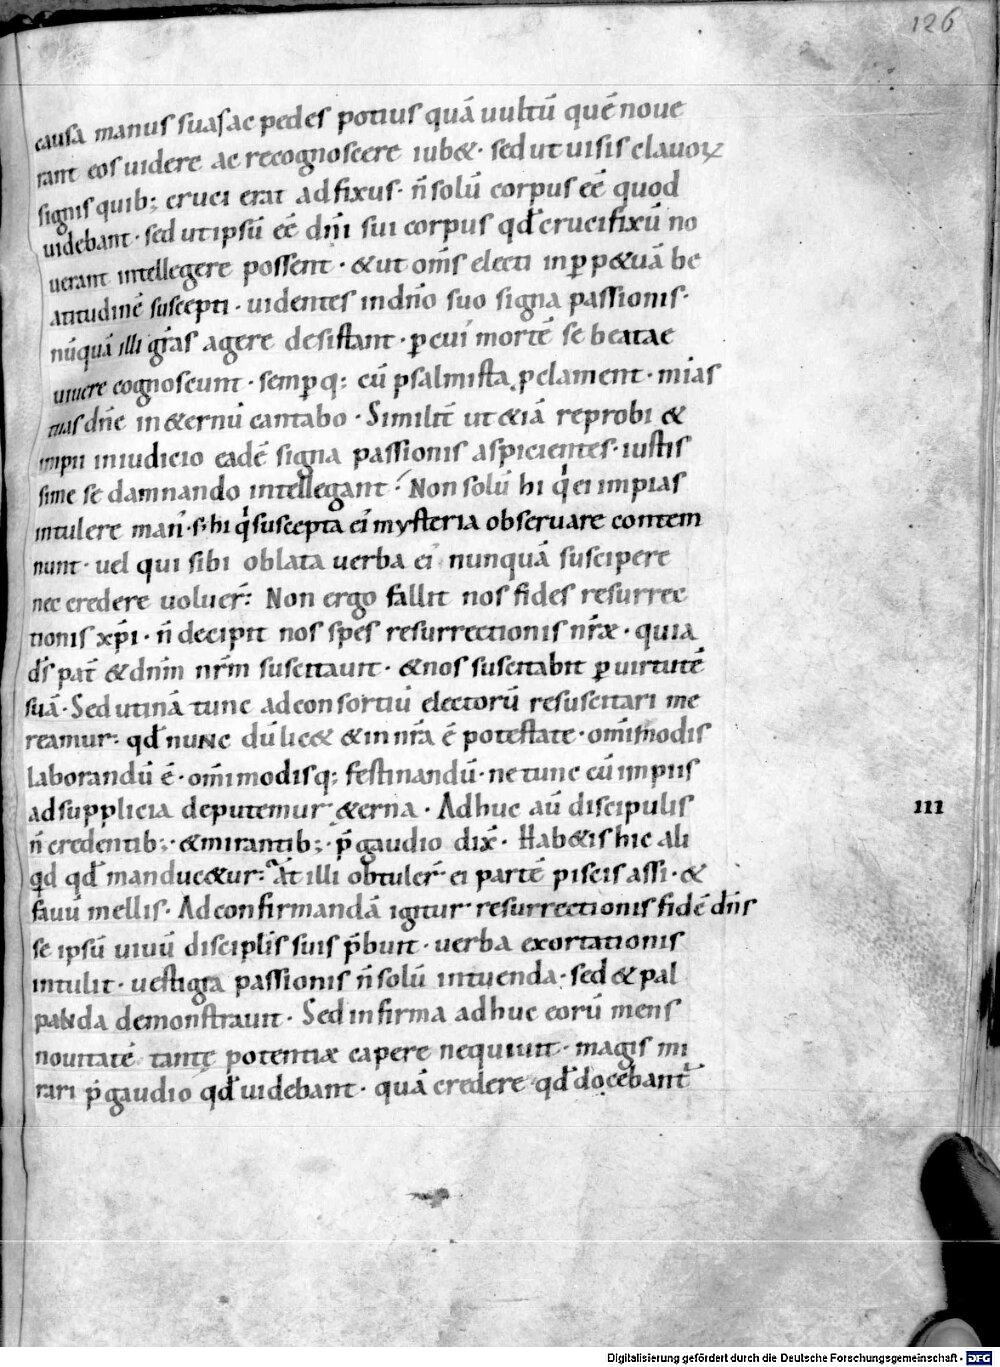 126
causa manus suas ac pedes potius quā uultū quē noue
rant eos uidere ac recognoscere iub&· sed ut uisis clauoꝝ
signis quib; cruci erat adfixus· n̄ solū corpus eē quod
uidebant· sed ut ipsū eē dn̄i sui corpus qđ crucifixū no
uerant intellegere possent· & ut om̄s electi in ꝑp&uā be
atitudinē suscepti· uidentes in dn̄o suo signa passionis·
nūquā illi gr̄as agere desistant· ꝑ cui' mortē se beatae
uiuere cognoscunt· semꝑq; cū psalmista ꝓclament· mias
tuas dn̄e in &ernū cantabo· Similit̄ ut &iā reprobi &
impii in iudicio eadē signa passionis aspicientes· iustis
sime se damnando intellegant· Non solū hi qͥ ei impias
intulere man'· s; hi qͥ suscepta ei' mysteria obseruare contem
nunt· uel qui sibi oblata uerba ei' nunquā suscipere
nec credere uoluer̄· Non ergo fallit nos fides resurrec
tionis xp̄i· n̄ decipit nos spes resurrectionis nr̄æ· quia
d̄s pat̄ & dn̄m nr̄m suscitauit· & nos suscitabit ꝑ uirtutē
suā· Sed utinā tunc ad consortiū electorū resuscitari me
reamur· qđ nunc dū lic& & in nr̄a ē potestate· om̄imodis
laborandū ē· om̄imodisq; festinandū· ne tunc cū impiis
ad supplicia deputemur &erna· Adhuc aū discipulis
n̄ credentib;· & mirantib;· p̄ gaudio dix̄· Hab&is hic ali
qđ qđ manduc&ur· At illi obtuler̄ ei partē piscis assi· &
fauū mellis· Ad confirmandā igitur resurrectionis fidē dn̄s
se ipsū uiuū disciplis suis p̄buit· uerba exortationis
intulit· uestigia passionis n̄ solū intuenda· sed & pal
panda demonstrauit· Sed infirma adhuc eorū mens
nouitatē tantę potentiæ capere nequiuit· magis mi
rari p̄ gaudio qđ uidebant· quā credere qđ docebant̄
III
Digitalisierung gefördert durch die Deutsche Forschungsgemeinschaft - DFG